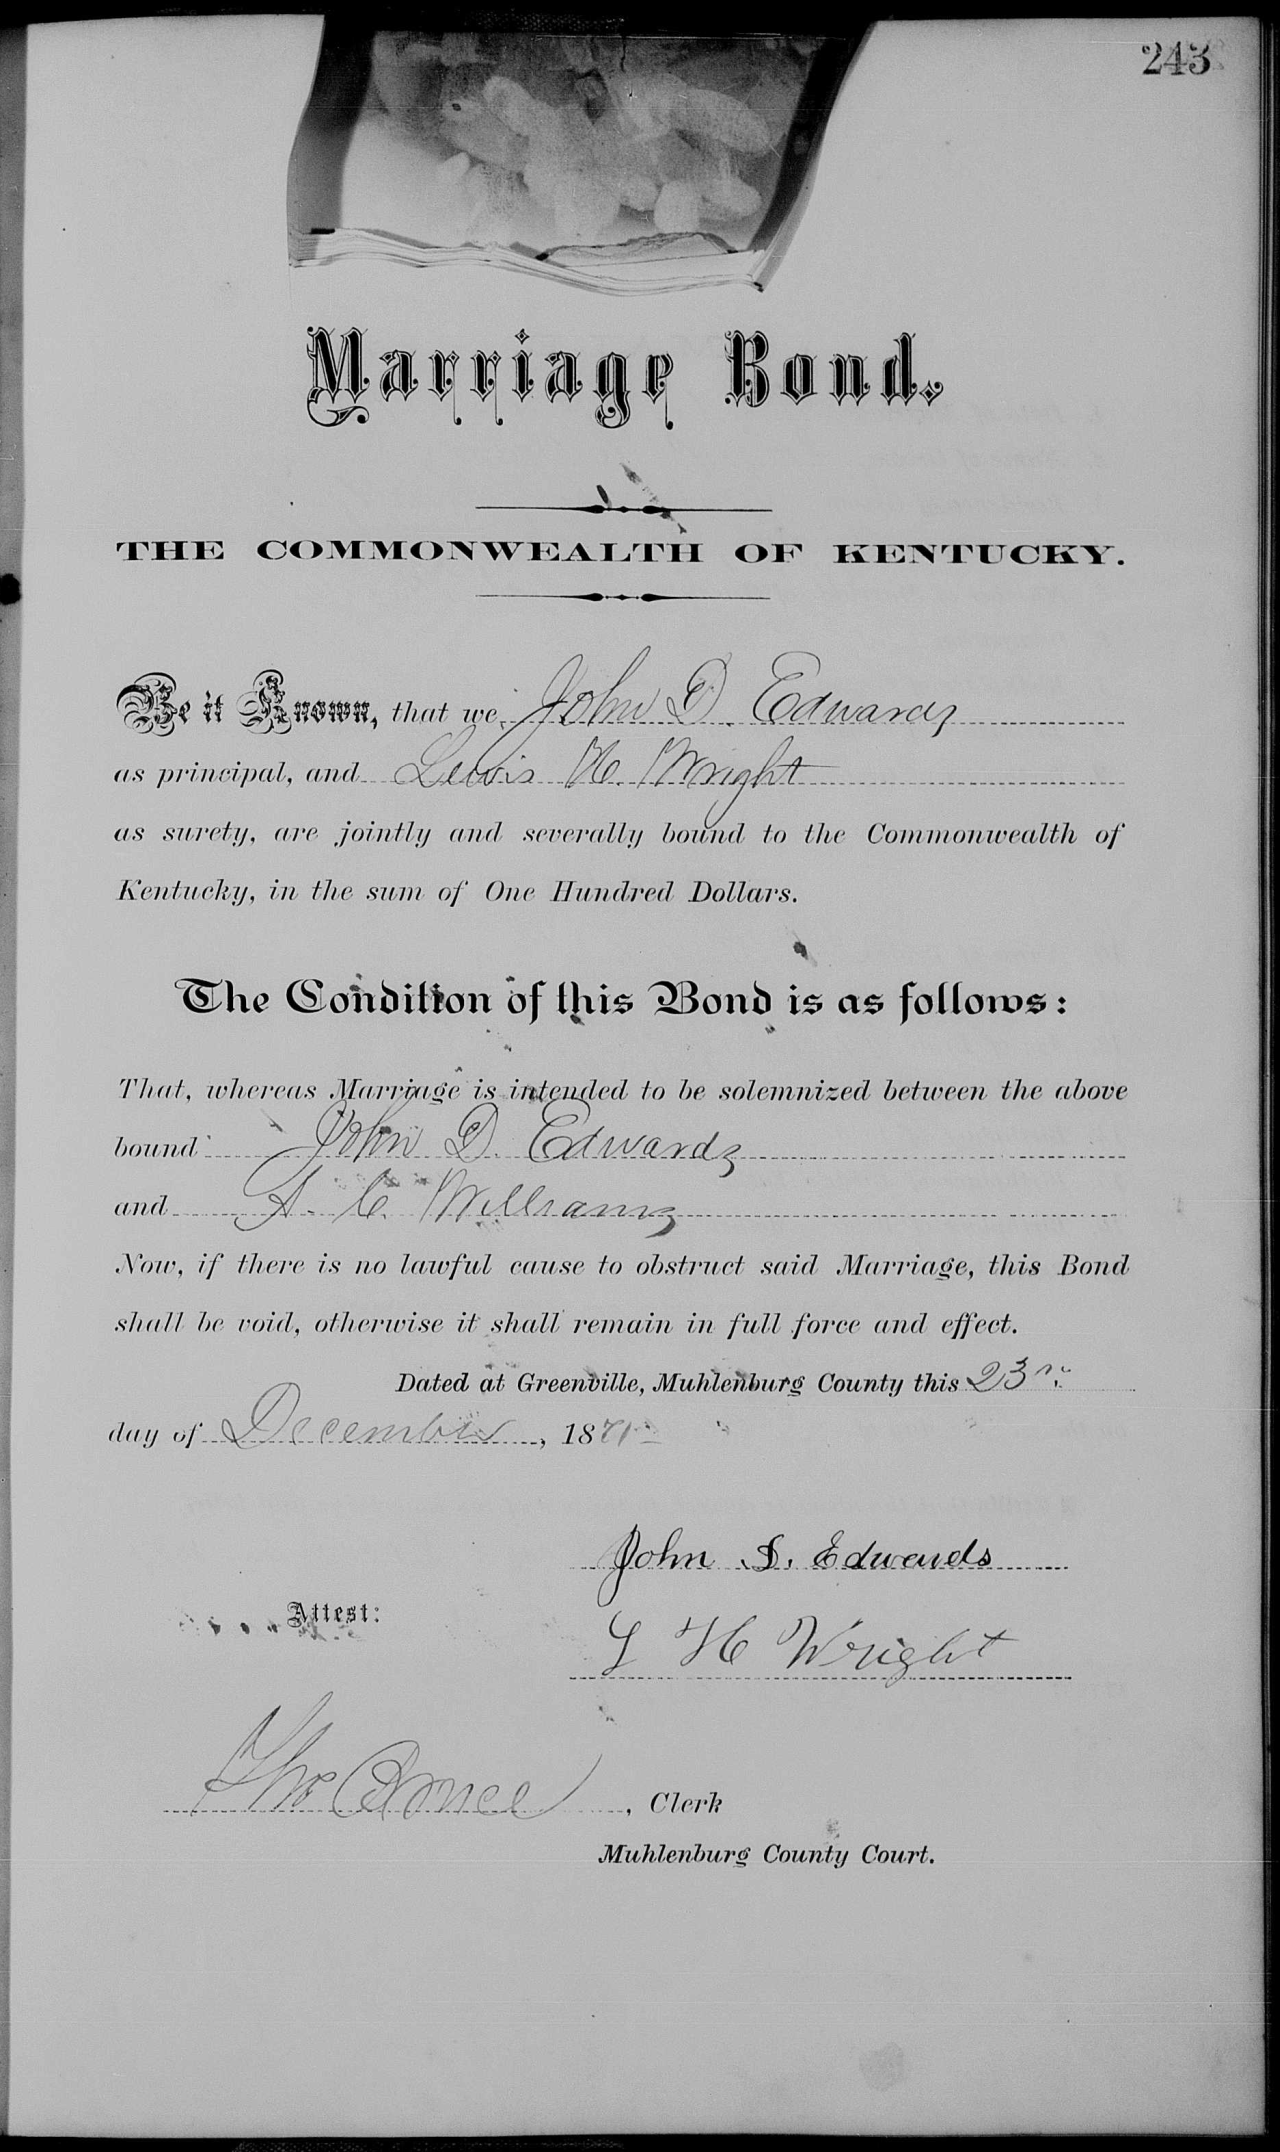 243
Marriage Bond.
THE COMMONWEALTH OF KENTUCKY.
Be it Known, that we, John D. Edwards
as principal, and Lewis H. Wright
as surety, are jointly and severally bound to the Commonwealth of
Kentucky, in the sum of One Hundred Dollars.
The Condition of this Bond is as follows:
That, whereas Marriage is intended to be solemnized between the above
bound John D. Edwards
and A. C. Williams
Now, if there is no lawful cause to obstruct said Marriage, this Bond
shall be void, otherwise it shall remain in full force and effect.
Dated at Greenville, Muhlenburg County this 23rd
day of December, 1871
John D. Edwards
Attest:
L H Wright
Tho Bruce, Clerk
Muhlenburg County Court.